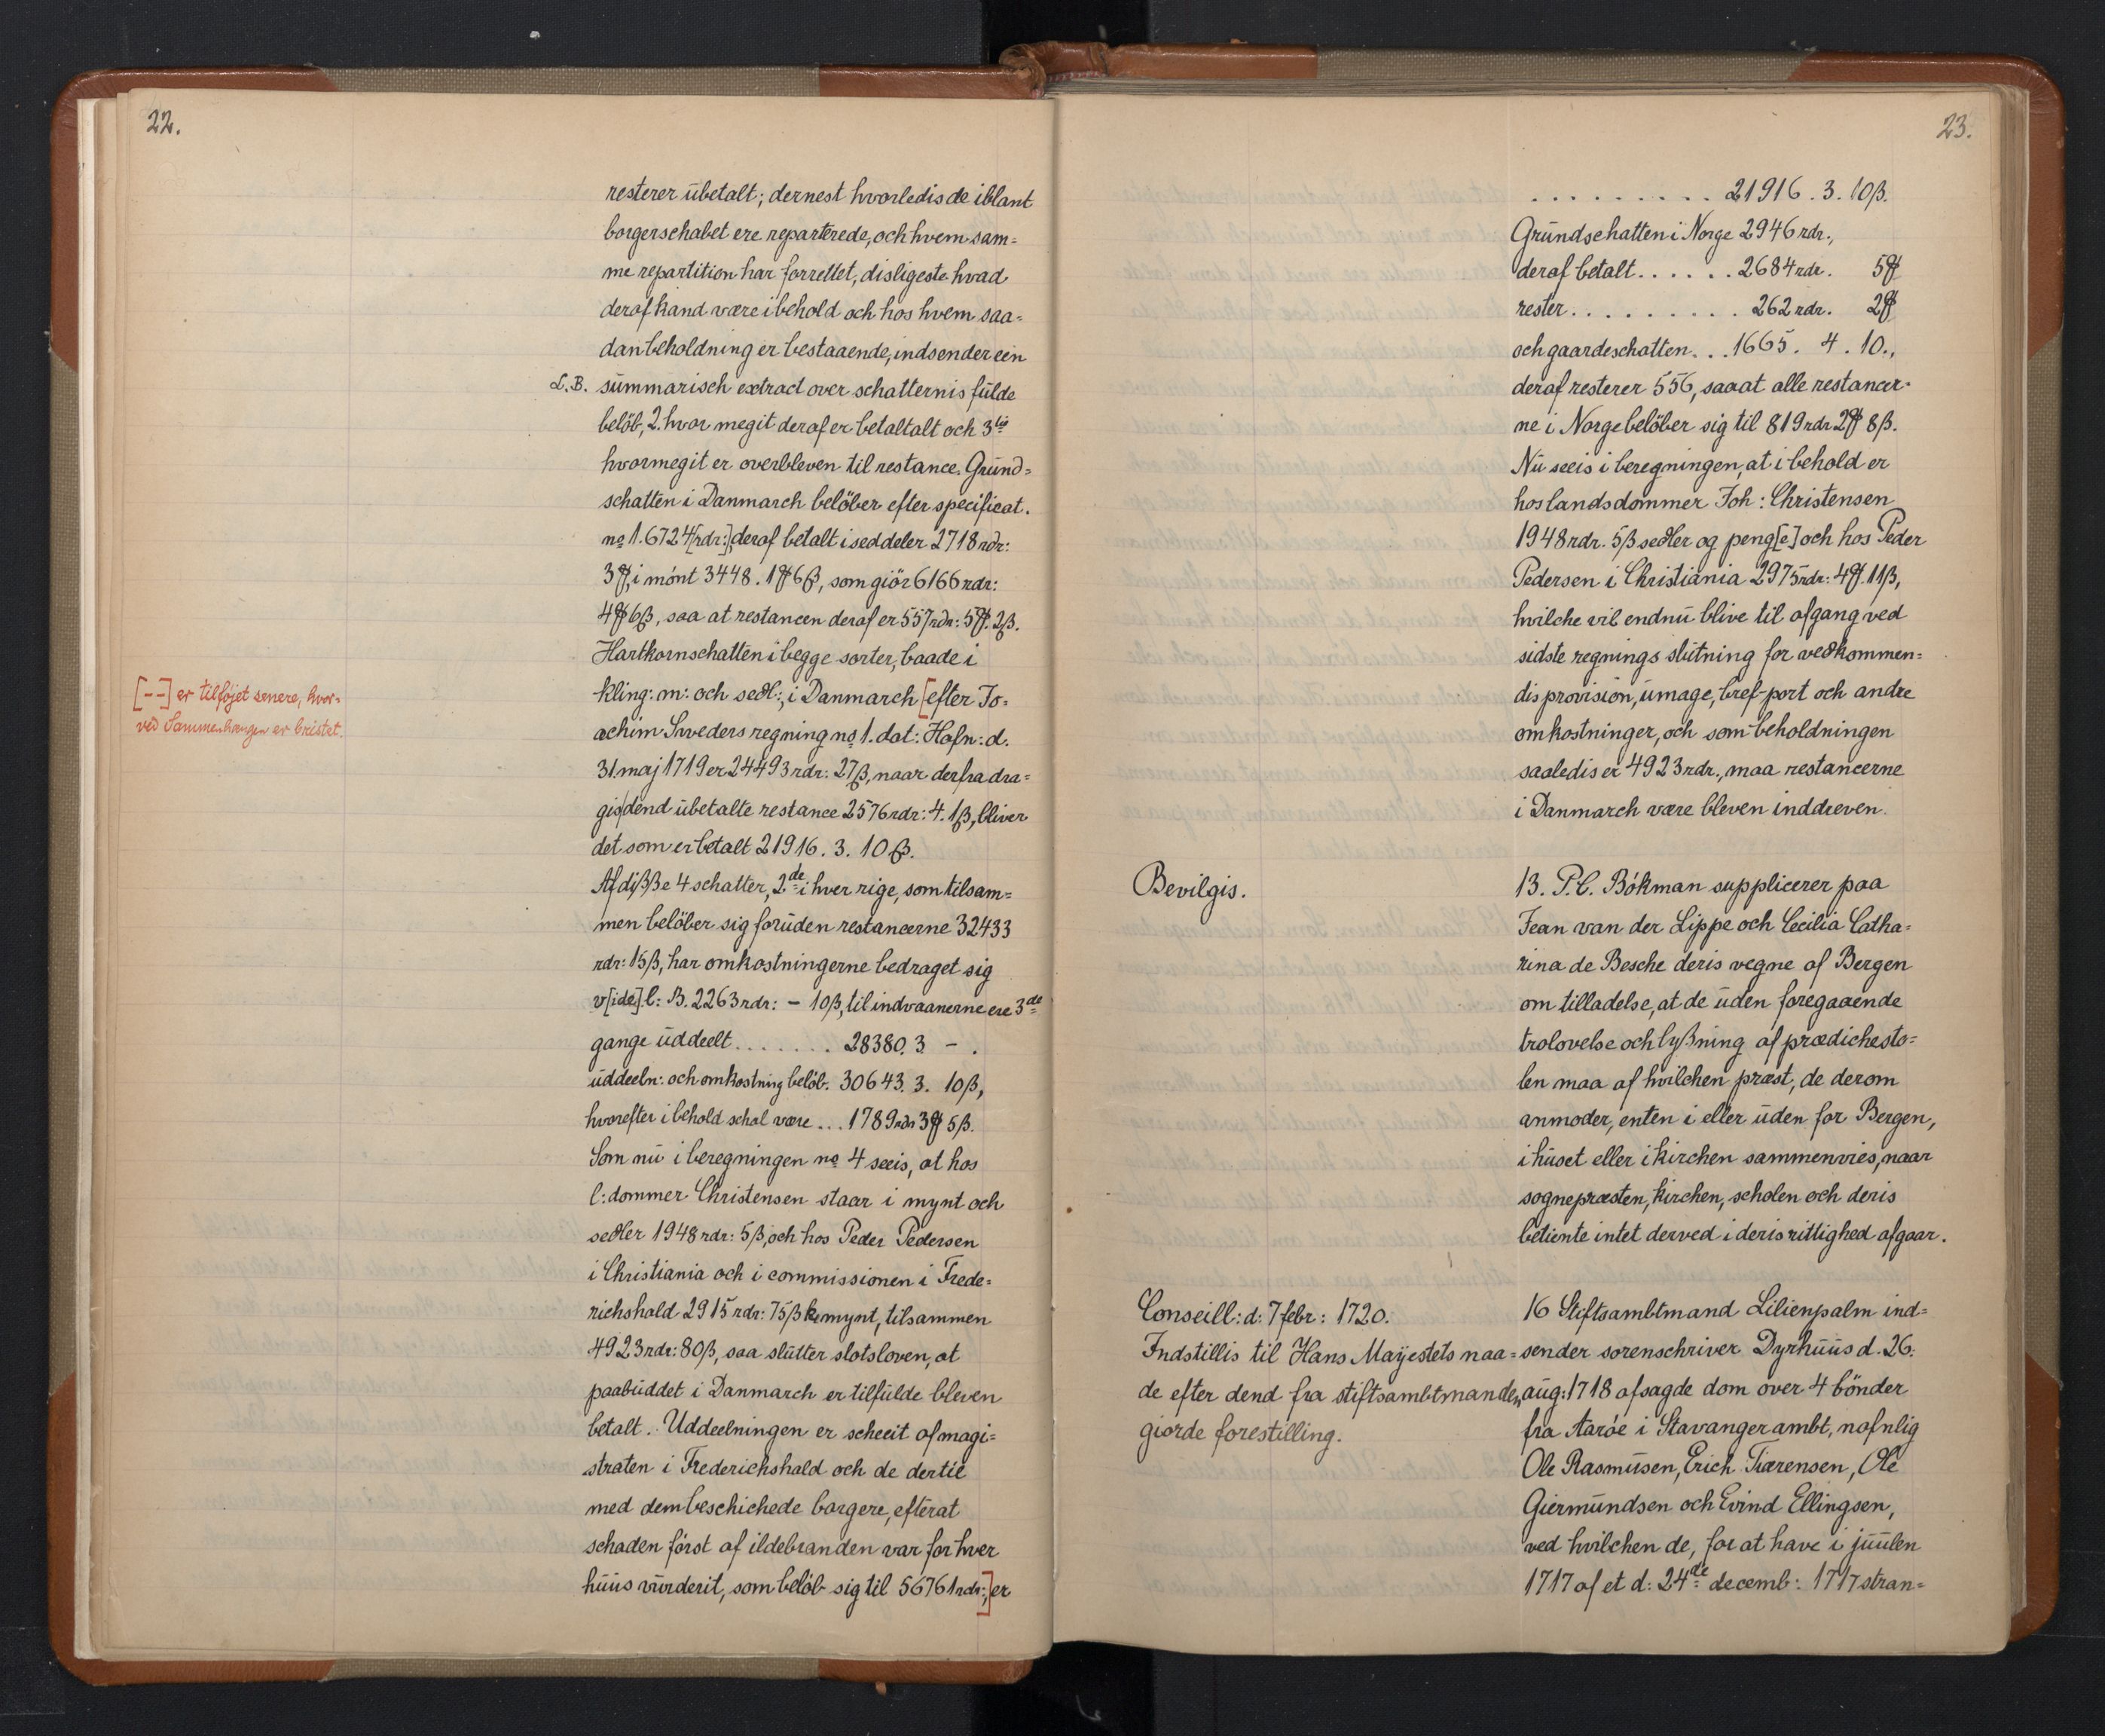 22.
resterer ŭbetalt; dernest hvorledis de iblant
borgerschabet ere reparterede, och hvem sam=
me repartition har forrettet, disligeste hvad
deraf kand være i behold och hos hvem saa=
dan beholdning er bestaaende, indsender een
L.B. sŭmmarisch extract over schatternis fŭlde
belöb, 2. hvor megit deraf er betaltalt och 3tie
hvormegit er overbleven til restance. Grŭnd=
schatten i Danmarch belöber efter specificat.
no 1. 6724 [rdr:], deraf betalt i seddeler 2718 rdr:
3 ₰, i mónt 3448. 1 ₰ 6 β, som giör 6166 rdr:
4 ₰ 6 β, saa at restancen deraf er 557 rdr: 5 ₰. 2 β.
Hartkornschatten i begge sorter, baade i
kling: m: och sedl:, i Danmarch [efter Jo=
[--] er tilføjet senere, hvor=
ved Sammenhængen er bristet.
achim Sweders regning no 1. dat: Hafn: d.
31 maj 1719 er 24493 rdr: 27 β, naar derfra dra=
gis dend ŭbetalte restance 2576 rdr: 4. 1 β, bliver
det som er betalt 21916. 3. 10 β.
Af dißße 4 schatter, 2de i hver rige, som tilsam=
men belöber sig forŭden restancerne 32433
rdr: 15 β, har omkostningerne bedraget sig
v[ide] l: B. 2263 rdr: - 10 β, til indvaanerne ere 3de
gange ŭddeelt . . . . . . . 28380. 3 - .
ŭddeeln: och omkostning belöb. 30643. 3. 10 β,
hvorefter i behold schal være . . . 1789 rdr 3 ₰ 5 β.
Som nŭ i beregningen no 4 seeis, at hos
l: dommer Christensen staar i mynt och
sedler 1948 rdr: 5 β, och hos Peder Pedersen
i Christiania och i commissionen i Frede=
richshald 2915 rdr: 75 β kr mynt, tilsammen
4923 rdr: 80 β, saa slŭtter slotsloven, at
paabŭddet i Danmarch er tilfŭlde bleven
betalt. Uddeelningen er scheeit af magi=
straten i Frederichshald och de dertil
med dem beschichede borgere, efterat
schaden fórst af ildebranden var for hver
hŭŭs vŭrderit, som belöb sig til 56761 rdr:,] er
23.
. . . . . . . . . . 21916. 3. 10 β.
Grŭndschatten i Norge 2946 rdr.,
deraf betalt . . . . . . 2684 rdr. 5 ₰
rester . . . . . . . . . 262 rdr. 2 ₰
och gaardeschatten . . . 1665. 4. 10.,
deraf resterer 556, saaat alle restancer=
ne i Norge belöber sig til 819 rdr 2 ₰ 8 β.
Nŭ seeis i beregningen, at i behold er
hos landsdommer Joh: Christensen
1948 rdr. 5 β sedler og peng[e] och hos Peder
Pedersen i Christiania 2975 rdr: 4 ₰. 11 β,
hvilche vil endnŭ blive til afgang ved
sidste regnings slŭtning for vedkommen=
dis provision, ŭmage, bref-port och andre
omkostninger, och som beholdningen
saaledis er 4923 rdr., maa restancerne
i Danmarch være bleven inddreven.
Bevilgis.
13. P. C. Bókman supplicerer paa
Jean van der Lippe och Cecilia Catha=
rina de Besche deris vegne af Bergen
om tilladelse, at de ŭden foregaaende
trolovelse och lyßning af prædichesto=
len maa af hvilchen præst, de derom
anmoder, enten i eller ŭden for Bergen,
i hŭset eller i kirchen sammenvies, naar
sognepræsten, kirchen, scholen och deris
betiente intet derved i deris rittighed afgaar.
Conseill: d: 7 febr: 1720.
Indstillis til Hans Maÿestets naa=
de efter dend fra stiftsambtmanden
giorde forestilling.
16 Stiftsambtmand Lilienpalm ind=
sender sorenschriver Dyrhŭŭs d. 26.
aŭg: 1718 afsagde dom over 4 bönder
fra Aaróe i Stavanger ambt, nafnlig
Ole Rasmŭsen, Erich Tiærensen, Ole
Giermŭndsen och Evind Ellingsen,
ved hvilchen de, for at have i jŭŭlen
1717 af et d: 24de decemb: 1717 stran=